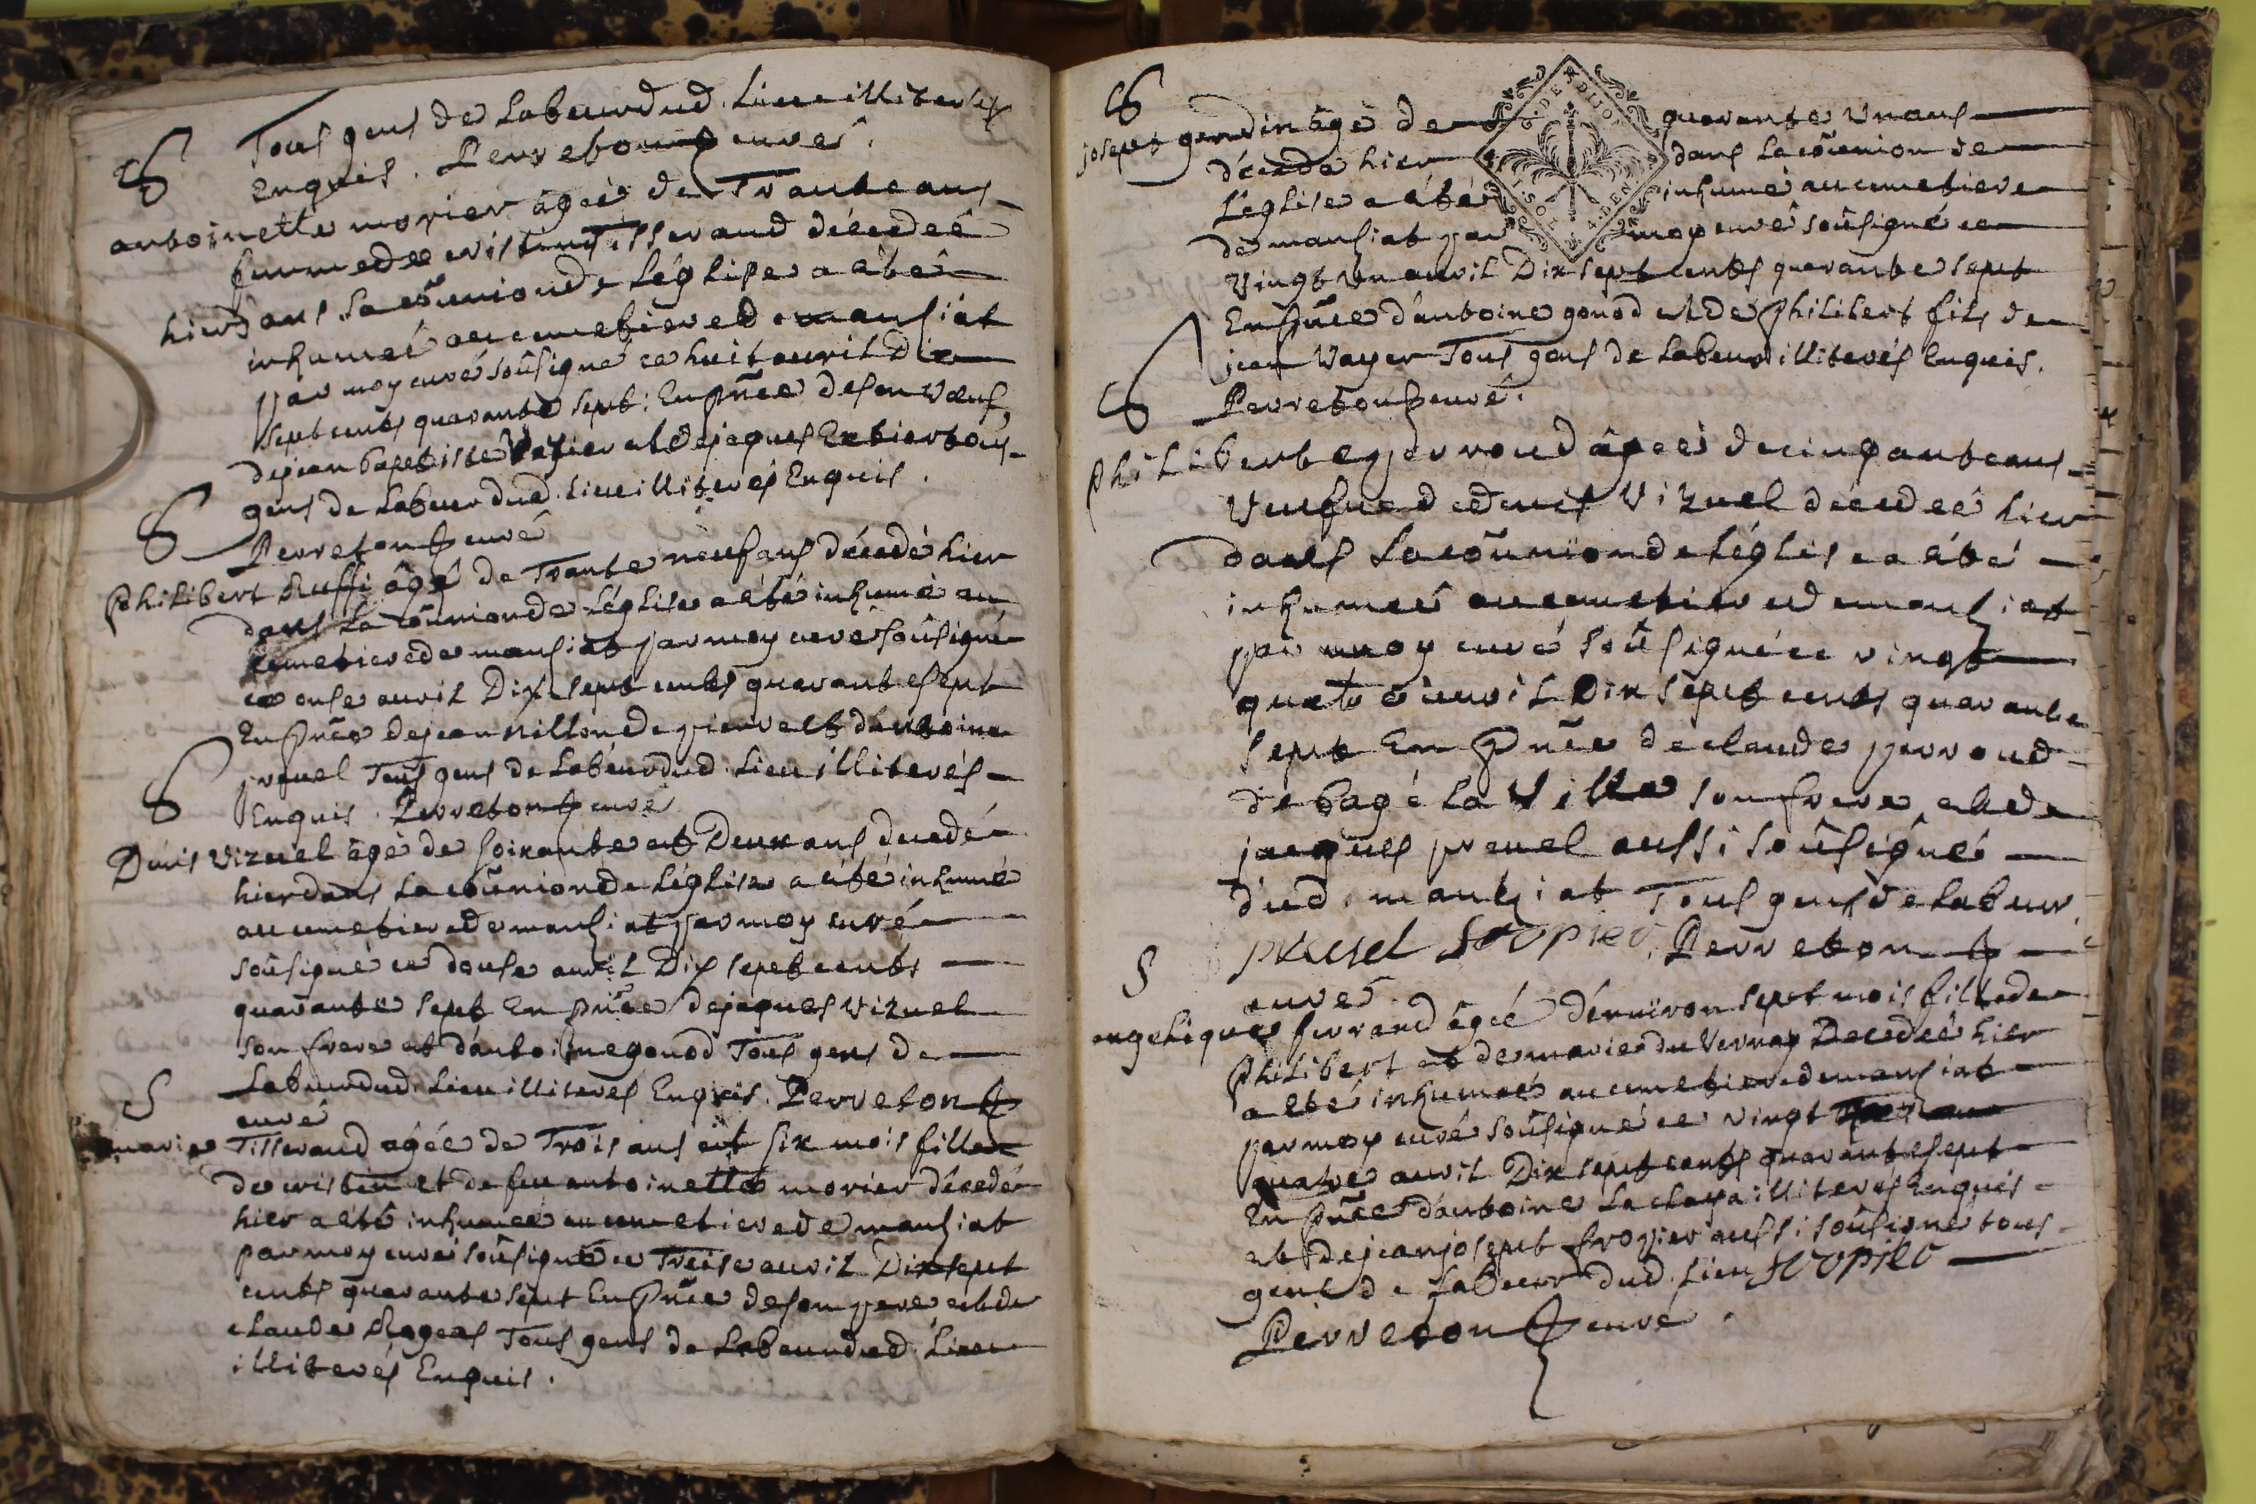 S
Tous gens de Labeur dud. Lieu illiterés
Enquis. Perreton curé.
antoinette morier âgée de Trante ans
femme de cristin Tisserand décedeé
hier dans la coũnion de Léglise a été
inhumeé au cemetiere de manziat
par moy curé soûsigné ce huit avril Dix
sept cents quarante sept: En pñce de son veuf
de jean baptiste et de jaques tous
gens de Labeur dud. Lieu illiterés Enquis.
S
Perreton curé
Philibert Ruffi âgé de Trante neuf ans décedé hier
dans La coũnion de Léglise a été inhumé au
cemetiere de manziat par moy curé soûsigné
ce onse avril Dix sept cents quarante sept
En pñce de jean et d'antoine
pruel Tous gens de Labeur dud. Lieu illiterés
S
Enquis. Perreton curé
Denis Vizuel âgé de soixante et Deux ans decedé
hier dans La coũnion de Léglise a été inhumé
au cemetiere de manziat par moy curé
soûsigné ce douse avril Dix sept cents
quarante sept En pñce de jaques Vizuel
son frere et d'antoine gonod Tous gens de
Labeur dud. Lieu illiterés Enquis. Perreton
S
curé
marie Tisserand agée de Trois ans et six mois fille
de cristin et de feu antoinette morier décedé
hier a été inhumeé au cemetiere de manziat
par moy curé soûsigné ce Treise avril Dix sept
cents quarante sept En pñce de son pere et de
claude Tous gens de Labeur dud. Lieu
illiterés Enquis.
S
josept gondin âgé de quarante un ans
décede hier dans La coũnion de
Léglise a été inhumé au cemetiere
de manziat par moy curé soûsigné ce
vingt un avril Dix sept cents quarante sept
En pñce d'antoine gonod et de Philibert fils de
jean Vayer Tous gens de Labeur illiterés Enquis.
S
Perreton curé.
Philiberte perroud âgeé de cinquante ans
veufue de denis Vizuel décedeé hier
dans La coũnion de Léglise a été
inhumeé au cemetiere de manziat
par moy curé soûsigné ce vingt
quatre avril Dix sept cents quarante
sept En pñce de claude perroud
de bagé La Ville son frere et de
jacques pruel aussi soûsignés
dud. manziat Tous gens de Labeur
pruel Perreton
S
curé.
angelique ferrand âgeé d'énuiron sept mois fille de
Philibert et de marie du Vernay Decedeé hier
a été inhumeé au cemetiere de manziat
par moy curé soûsigné ce vingt
quatre avril Dix sept cents quarante sept
En pñce d'antoine La claya illiterés Enquis
et de jean josept aussi soûsigné tous
gens de Labeur dud. Lieu
Perreton curé.